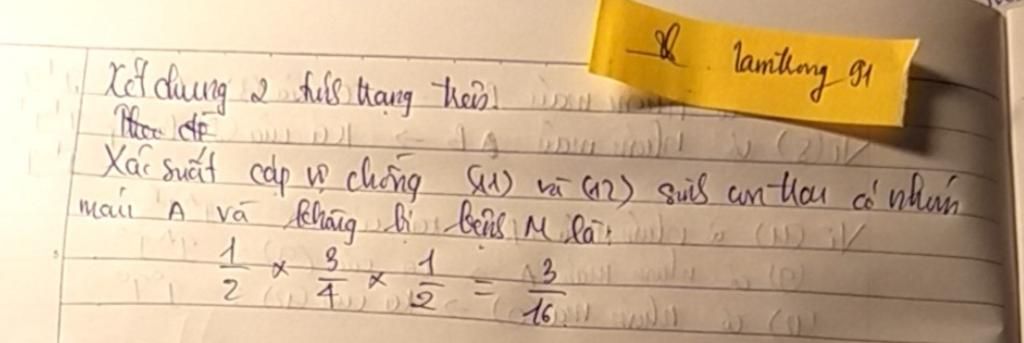 lamtrong 91
Xét chung 2 tính trạng trên:
Xác suất cặp vợ chồng (11) và (12) sinh con trai có nhóm
máu A và không bị bệnh M là:
1/2 × 3/4 × 1/2 = 3/16